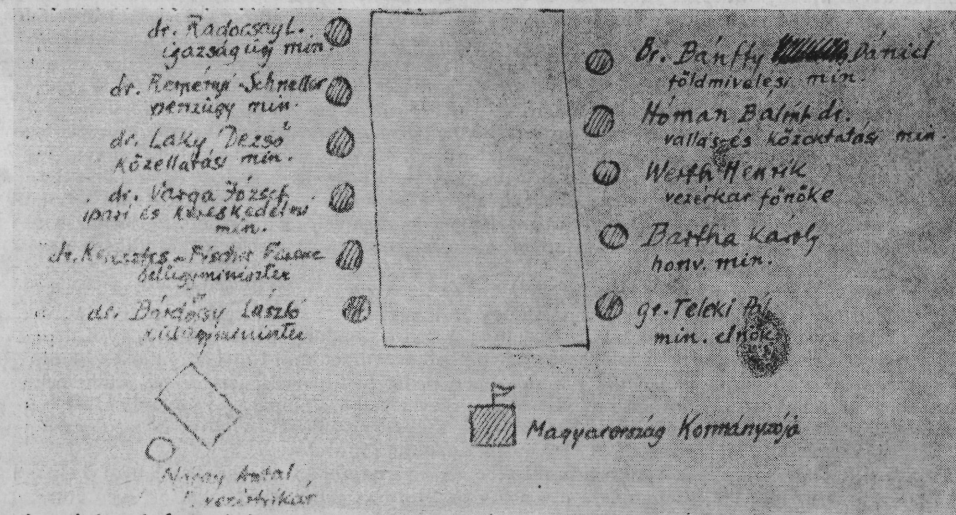 dr. Radocsay L.
igazságügy min.
dr. Reményi-Schneller
pénzügy min.
dr. Laky Dezső
közellátási min.
dr. Varga József
ipari és kereskedelmi
min.
dr. Keresztes-Fischer Ferenc
belügyminiszter
dr. Bárdossy László
külügyminiszter
Br. Bánffy Dániel
földmivelési min.
Hóman Bálint dr.
vallás és közoktatási min.
Werth Henrik
vezérkar főnöke
Bartha Károly
honv. min.
gr. Teleki Pál
min. elnök
Magyarország Kormányzója
Nagy Antal